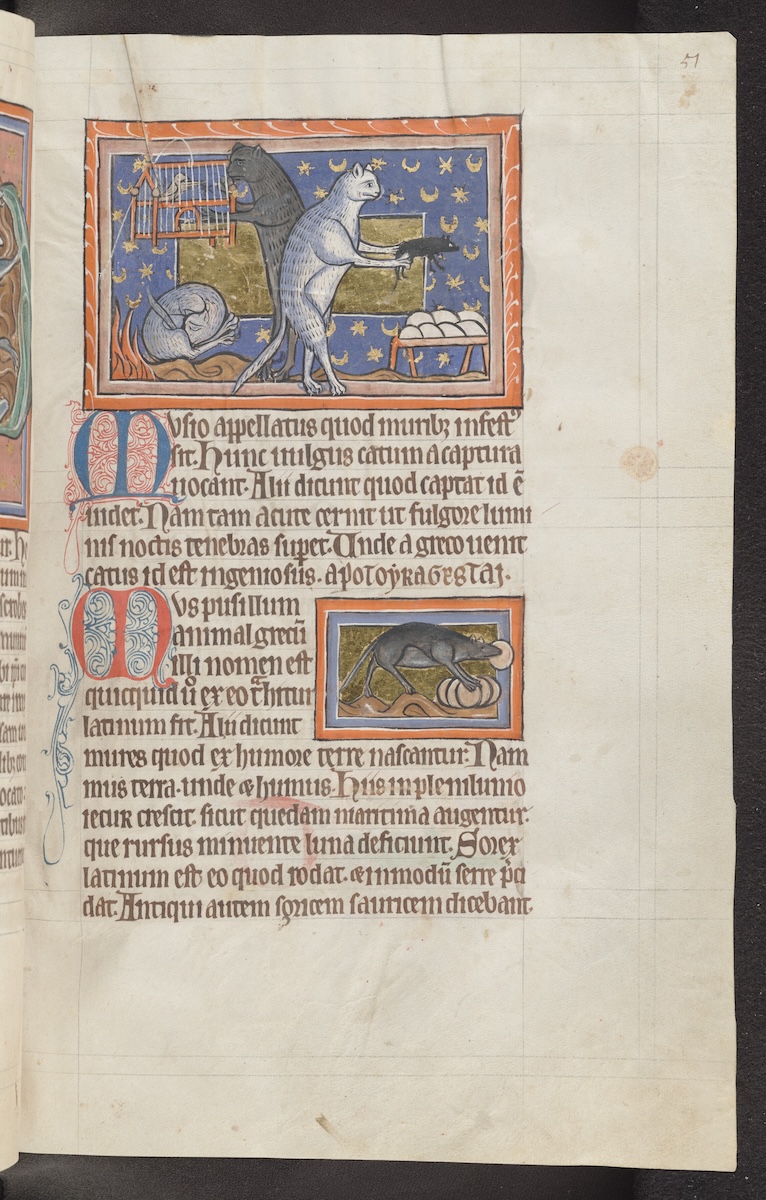 51
Musio appellatus quod muribꝫ infestꝰ
sit. Hunc uulgus catum a captura
uocant. Alii dicunt quod captat id ē
uidet. Nam tam acute cernit ut fulgore lumi
nis noctis tenebras suꝑet. Unde a greco uenit
catus id est ingeniosus. apotoykagestaj.
Mus pusillum
animal grecū
illi nomen est
quicquid u͛o ex eo t͛hitur
latinum fit. Alii dicunt
mures quod ex humore terre nascantur. Nam
mus terra. unde ⁊ humus. Hiis in plenilunio
iecur crescit. sicut quedam maritima augentur.
que rursus minuente luna deficiunt. Sorex
latinum est eo quod rodat. ⁊ in modū serre p̃ci
dat. Antiqui autem soricem sauricem dicebant.